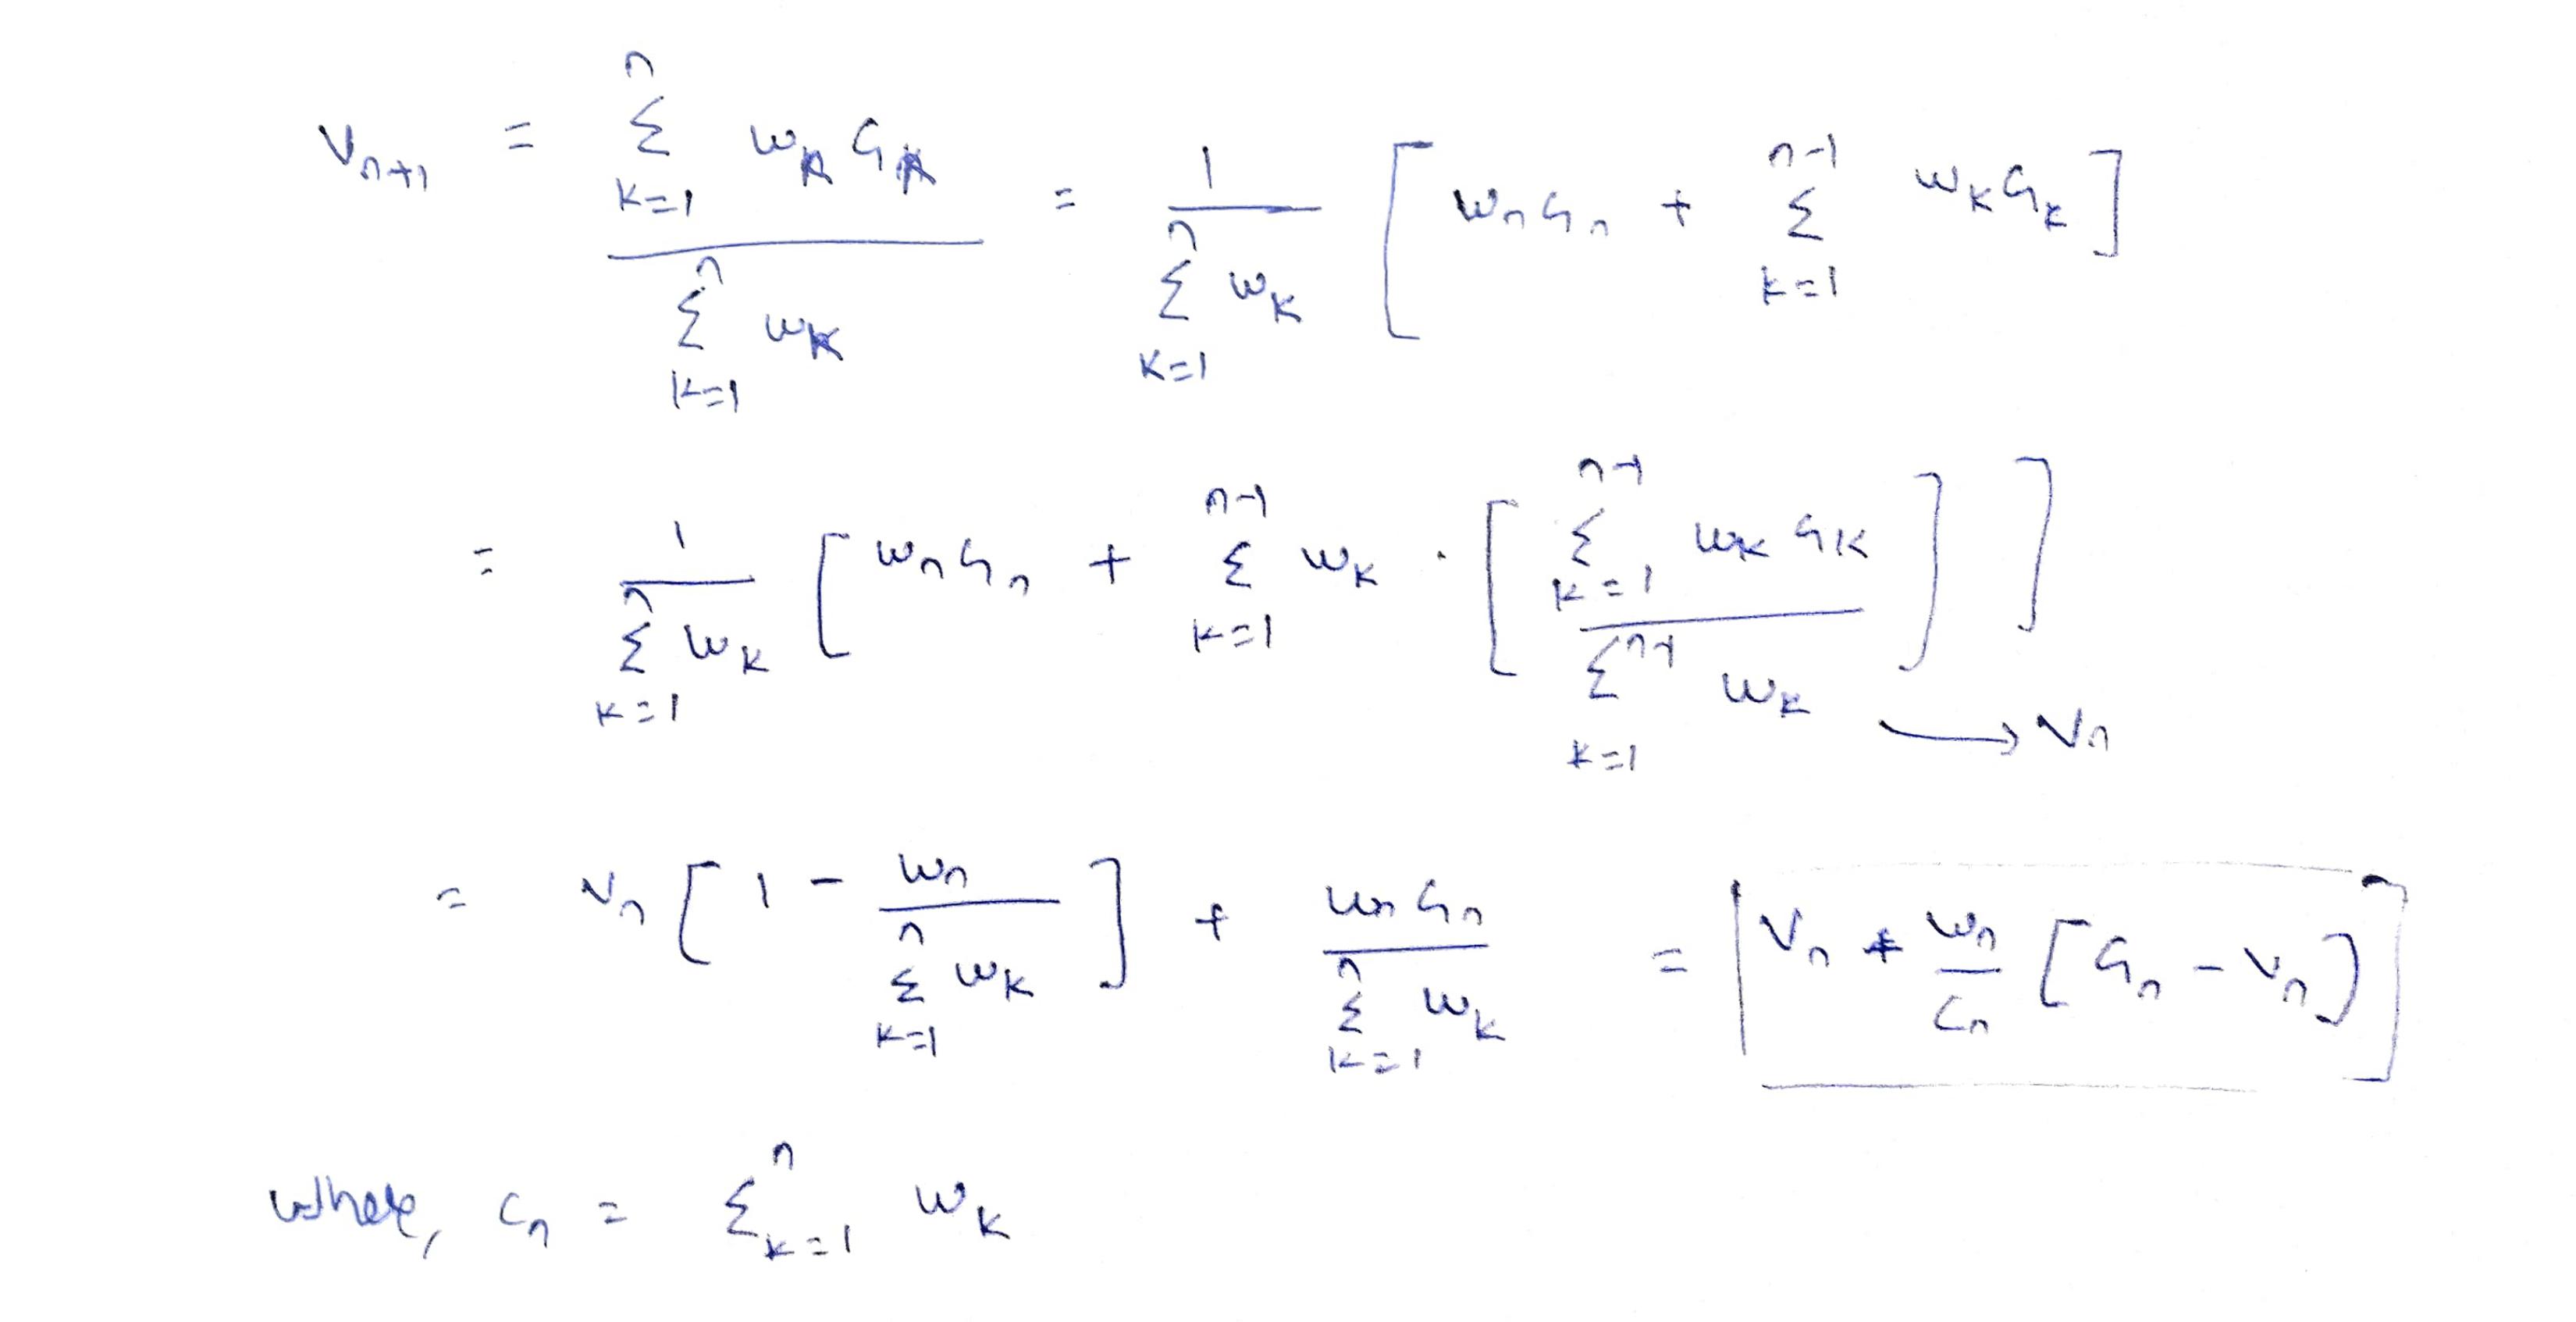 V_{n+1} = \frac{\sum_{k=1}^{n} W_k G_k}{\sum_{k=1}^{n} W_k} = \frac{1}{\sum_{k=1}^{n} W_k} [ W_n G_n + \sum_{k=1}^{n-1} W_k G_k ]
= \frac{1}{\sum_{k=1}^{n} W_k} [ W_n G_n + \sum_{k=1}^{n-1} W_k · [ \frac{\sum_{k=1}^{n-1} W_k G_k}{\sum_{k=1}^{n-1} W_k} ] ] → V_n
= V_n [ 1 - \frac{W_n}{\sum_{k=1}^{n} W_k} ] + \frac{W_n G_n}{\sum_{k=1}^{n} W_k} = V_n + \frac{W_n}{C_n} [ G_n - V_n ]
where, C_n = \sum_{k=1}^{n} W_k